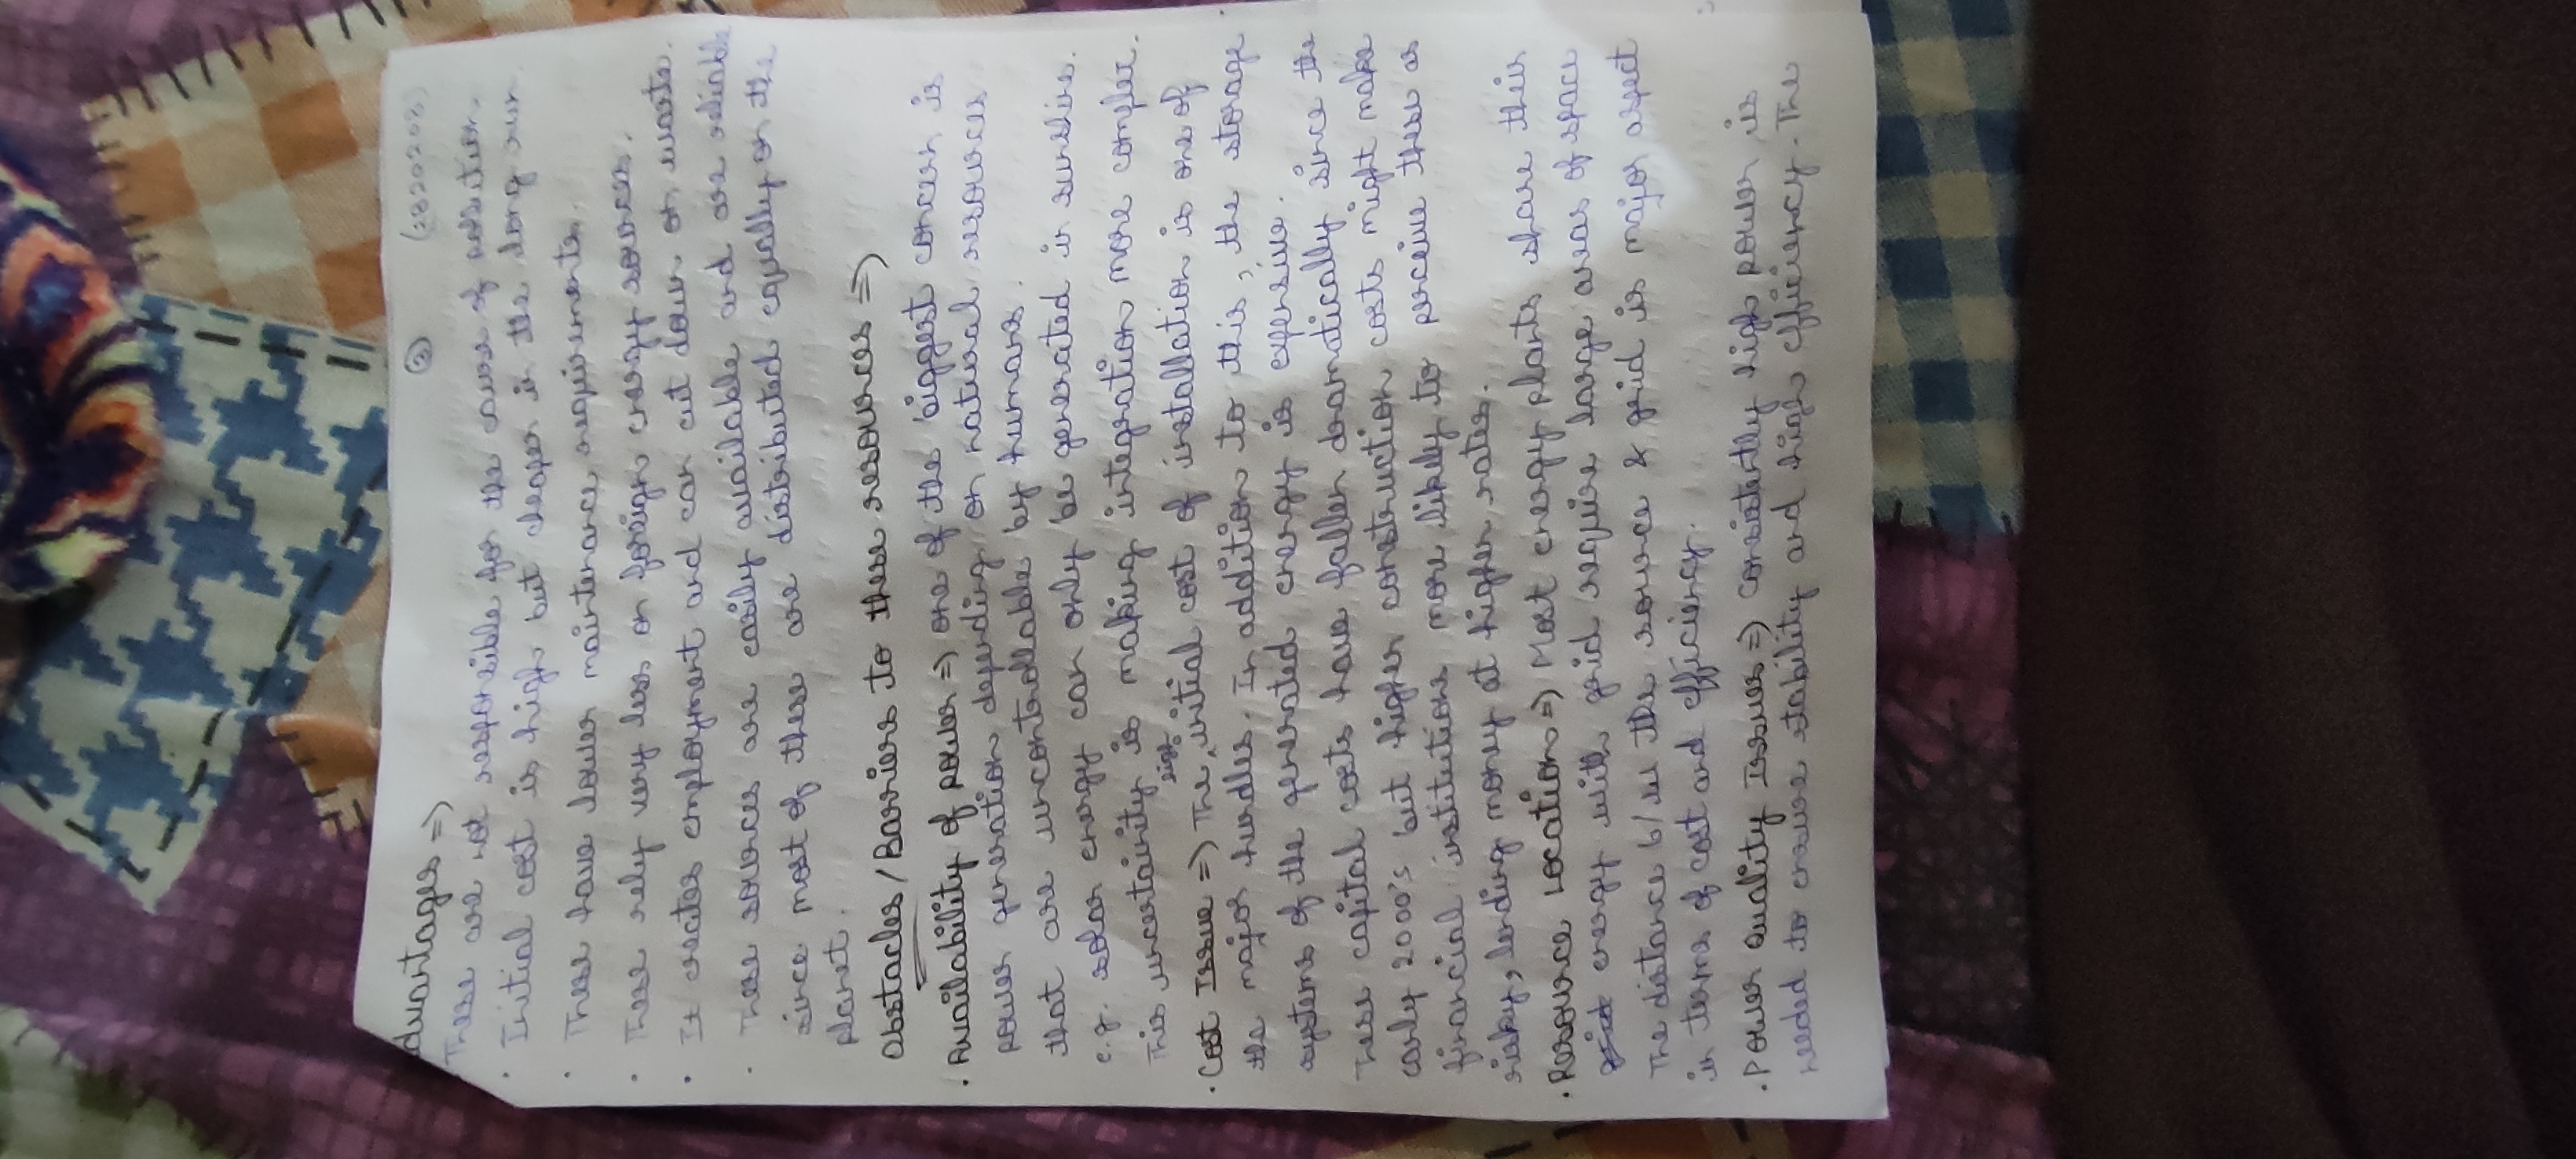 dvantages => ③ (2820208)
These are not responsible for the cause of pollution.
· Initial cost is high but cheaper in the long run
· These have lower maintenance requirements.
· These rely very less on foreign energy sources.
· It creates employment and can cut down on waste.
· These sources are easily available and are reliable
since most of these are distributed equally on the
planet.
Obstacles/Barriers to these resources =>
· Availability of power => one of the biggest concern is
power generation depending on natural resources
that are uncontrollable by humans.
e.g. solar energy can only be generated in sunshine.
This uncertainity is making integration more complex.
· Cost Issue => The high initial cost of installation is one of
the major hurdles. In addition to this, the storage
systems of the generated energy is expensive.
These capital costs have fallen dramatically since the
early 2000's but higher construction costs might make
financial institutions more likely to perceive these as
risky, lending money at higher rates.
· Resource Location => Most energy plants share their
energy with grid require large areas of space
The distance b/w the source & grid is major aspect
in terms of cost and efficiency.
· Power Quality Issues => Consistently high power is
needed to ensure stability and high efficiency. The